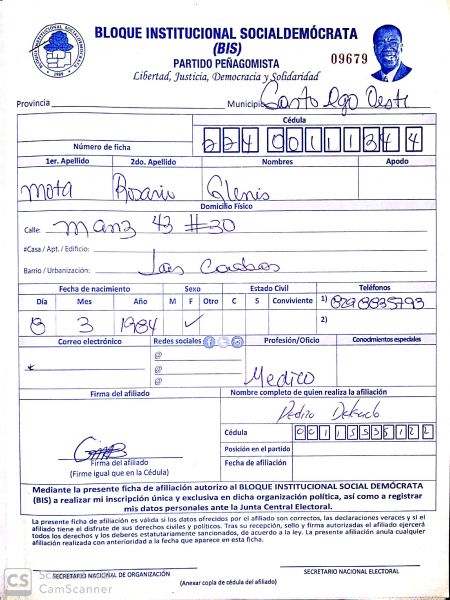 BLOQUE INSTITUCIONAL SOCIALDEMÓCRATA
(BIS)
PARTIDO PEÑAGOMISTA
09679
Libertad, Justicia, Democracia y Solidaridad
Provincia Municipio Santo Dgo Oeste
Cédula
Número de ficha
1er. Apellido 2do. Apellido Nombres Apodo
Mota Rosario Glenis
Domicilio Físico
Calle: Manz 43 #30
#Casa / Apt. / Edificio:
Barrio / Urbanización: Las Caobas
Fecha de nacimiento Sexo Estado Civil Teléfonos
Día Mes Año M F Otro C S Conviviente 1) 8298835793
8 3 1984 ✓ 2)
Correo electrónico Redes sociales Profesión/Oficio Conodmientos especiales
@
@
@
Medico
Firma del afiliado Nombre completo de quien realiza la afiliación
Pedro Delgado
Cédula 00115535122
Posición en el partido
Firma del afiliado
(Firme igual que en la Cédula)
Fecha de afiliación
Mediante la presente ficha de afiliación autorizo al BLOQUE INSTITUCIONAL SOCIAL DEMÓCRATA
(BIS) a realizar mi inscripción única y exclusiva en dicha organización política, así como a registrar
mis datos personales ante la Junta Central Electoral.
La presente ficha de afiliación es válida si los datos ofrecidos por el afiliado son correctos, las declaraciones veraces y si el
afiliado tiene el disfrute de sus derechos civiles y políticos. Tras su recepción, sello y firma autorizadas el afiliado ejercerá
todos los derechos y los deberes estatutariamente sancionados, de acuerdo a la ley. La presente afiliación anula cualquier
afiliación realizada con anterioridad a la fecha que aparece en esta ficha.
CS CamScanner
SECRETARIO NACIONAL DE ORGANIZACIÓN
SECRETARIO NACIONAL ELECTORAL
(Anexar copia de cédula del afiliado)